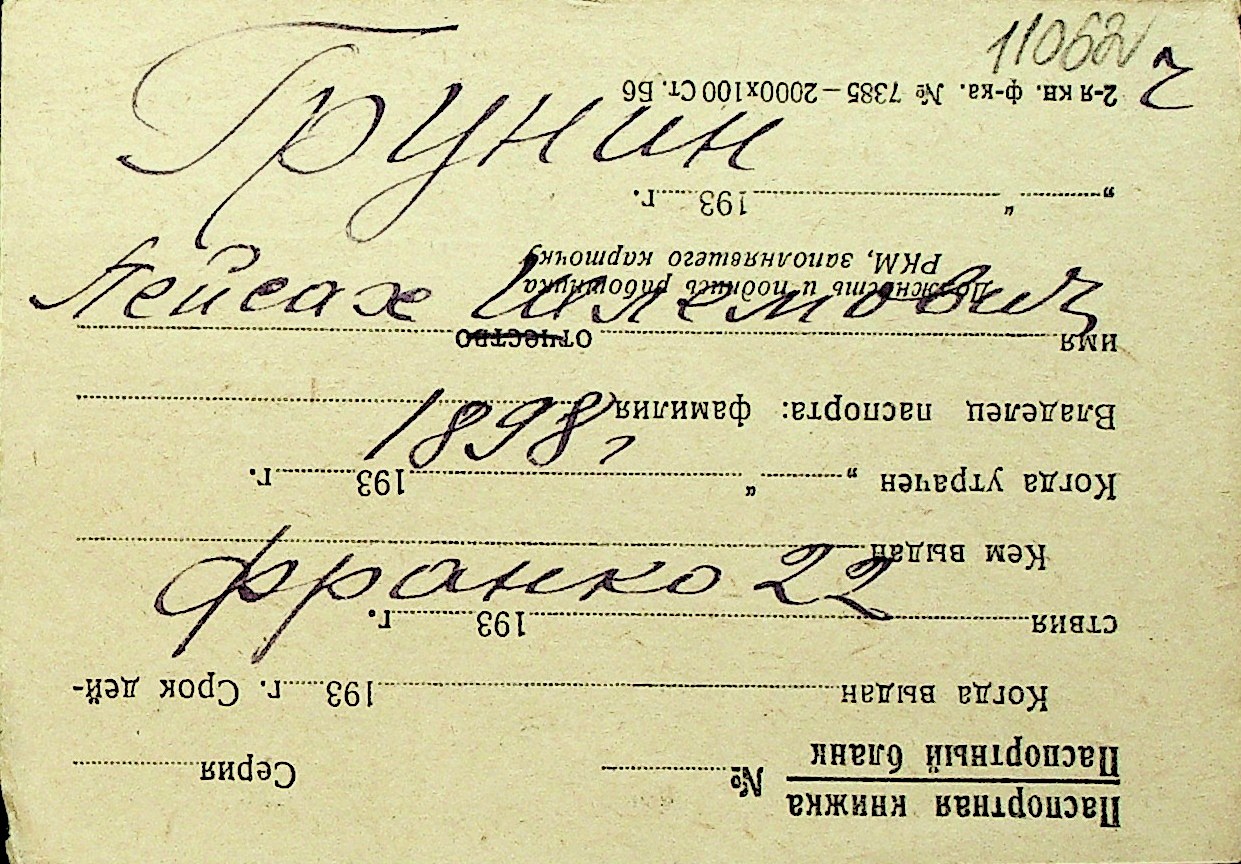 11062
2
Грунин
Пейсах Шлемович
1898 г
Франко 22
Паспортная книжка
Паспортный бланк
№
Серия
Когда выдан 193 г. Срок дей-
ствия 193 г.
Кем выдан
Когда утрачен „ “ 193 г.
Владелец паспорта: фамилия
имя отчество
Должность и подпись работника
РКМ, заполнявшего карточку
„ “ 193 г.
2-я кн. ф-ка. № 7385—2000х100 Ст. Б6